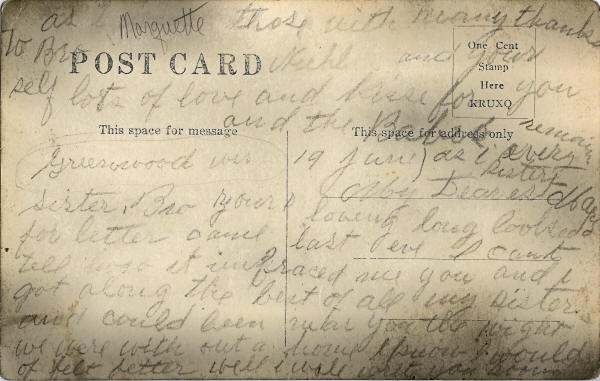 as I those with many thanks
Marquette
To Bro and your
self lots of love and kisse for you
and the Babes
remain
POST CARD
One Cent
Stamp
Here
KRUXQ
This space for message
This space for address only
Greenwood wis 19 June) as i every
sister
My Dearest
sister, Bro your loveing long looked
for letter came last eve I cant
tell how it me you and i
got along the best of all my sister
and I could been near you the night
we were with out a home I know I would
of felt better well i will you soon